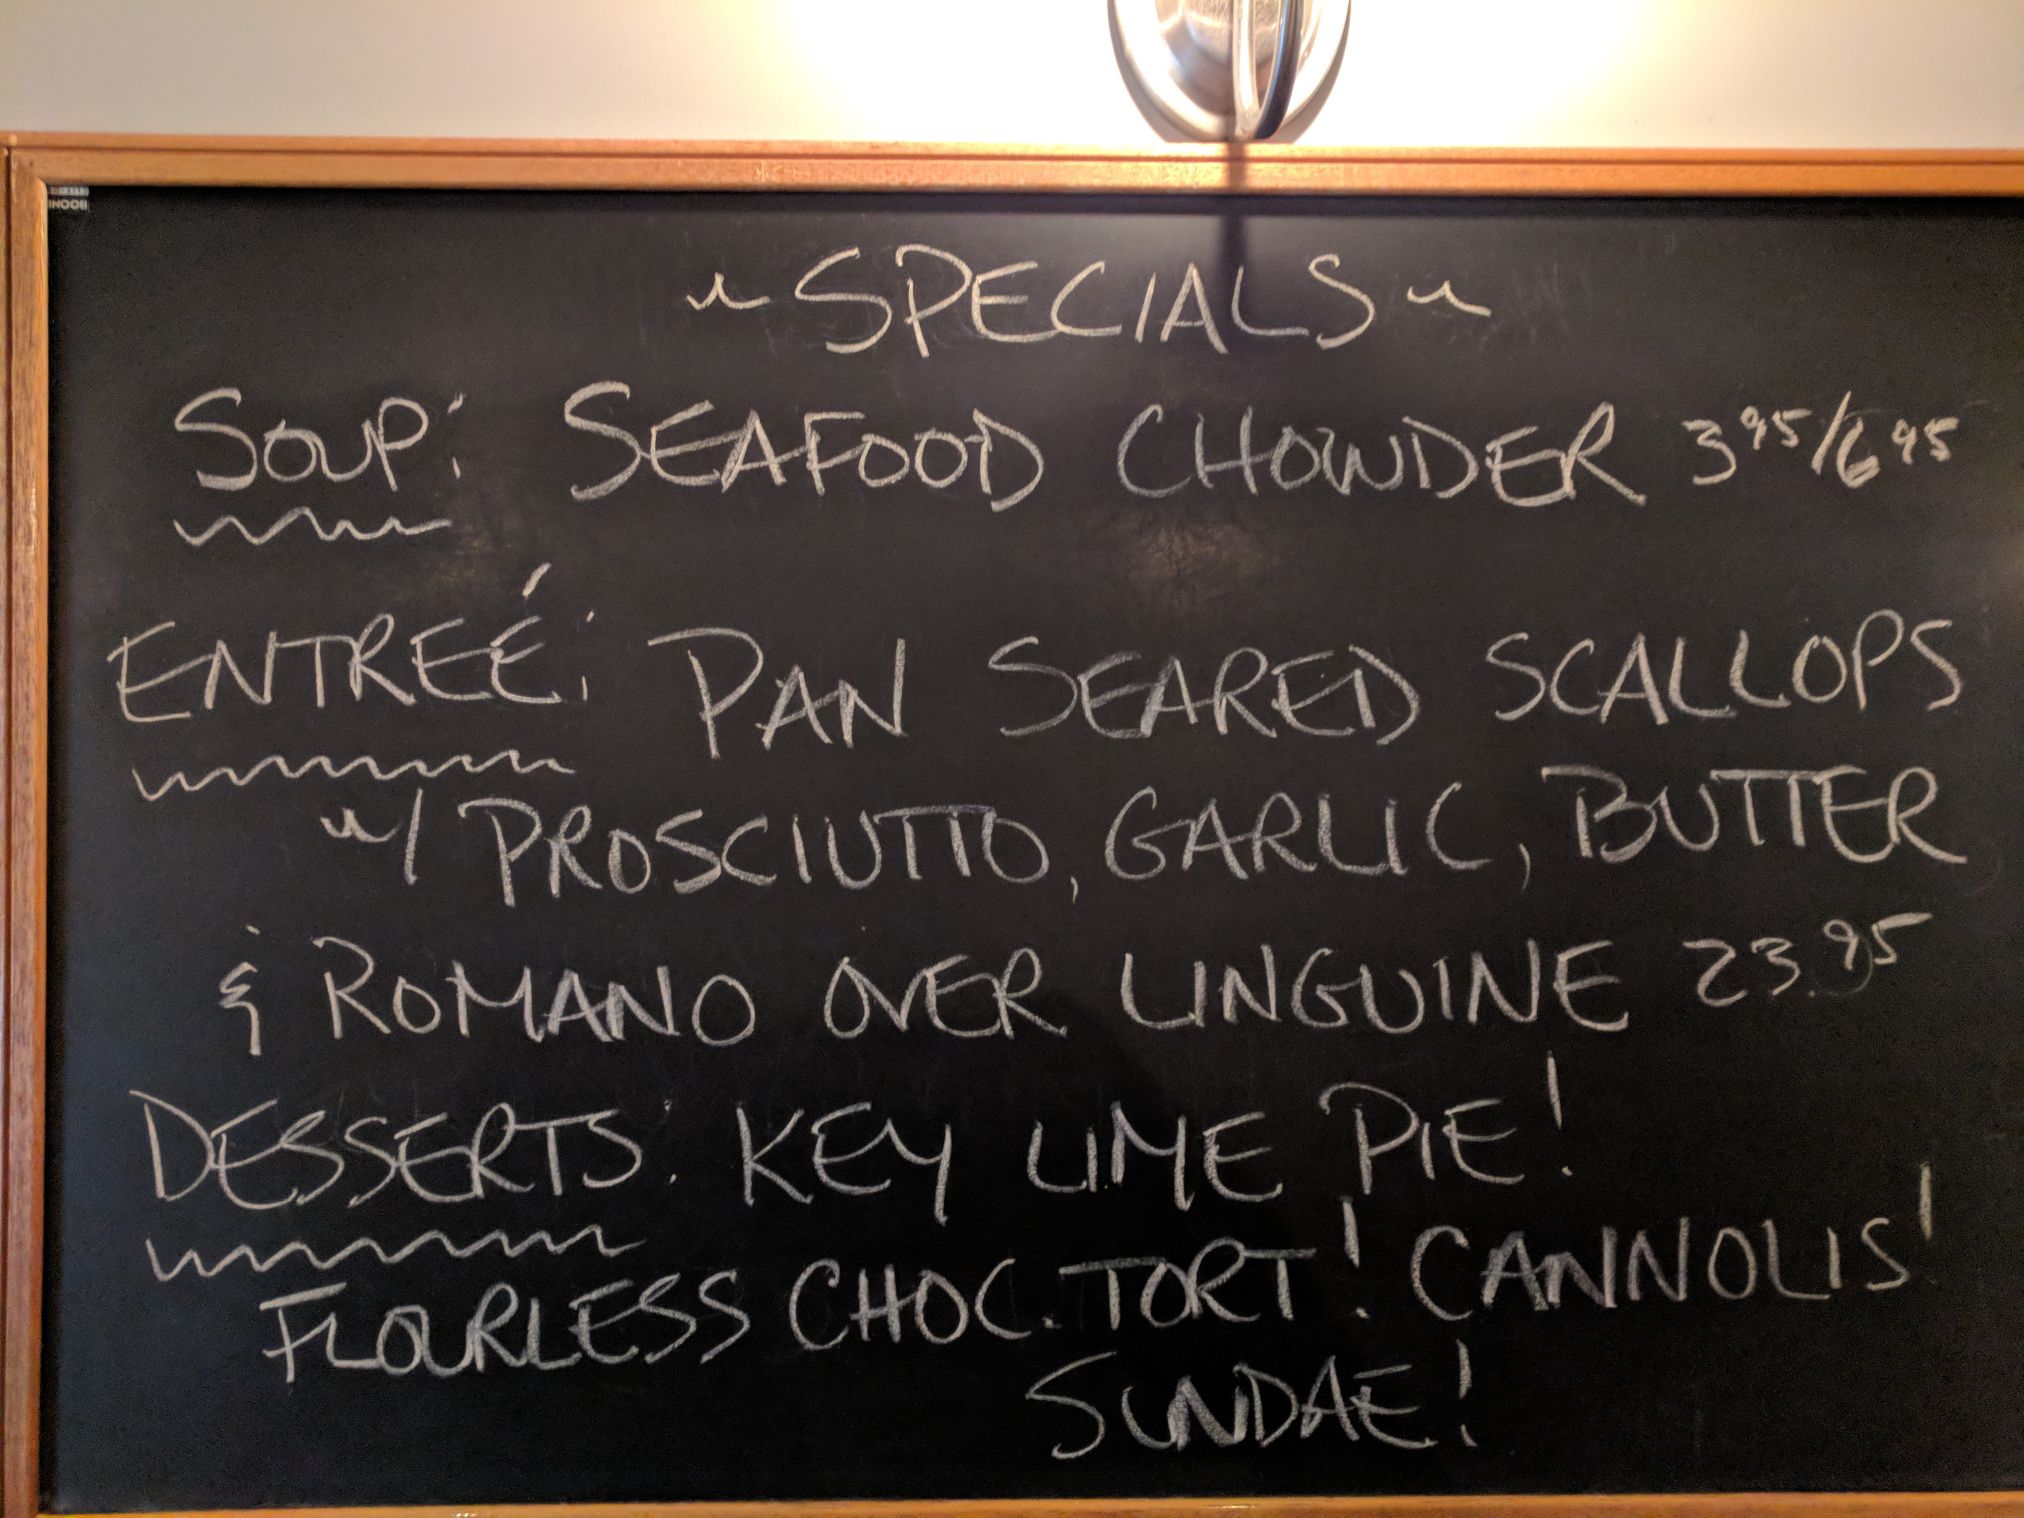 ~SPECIALS~
SOUP: SEAFOOD CHOWDER 3.95/6.95
ENTREÉ: PAN SEARED SCALLOPS
w/ PROSCIUTTO, GARLIC, BUTTER
& ROMANO OVER LINGUINE 23.95
DESSERTS: KEY LIME PIE!
FLOURLESS CHOC. TORT! CANNOLIS!
SUNDAE!